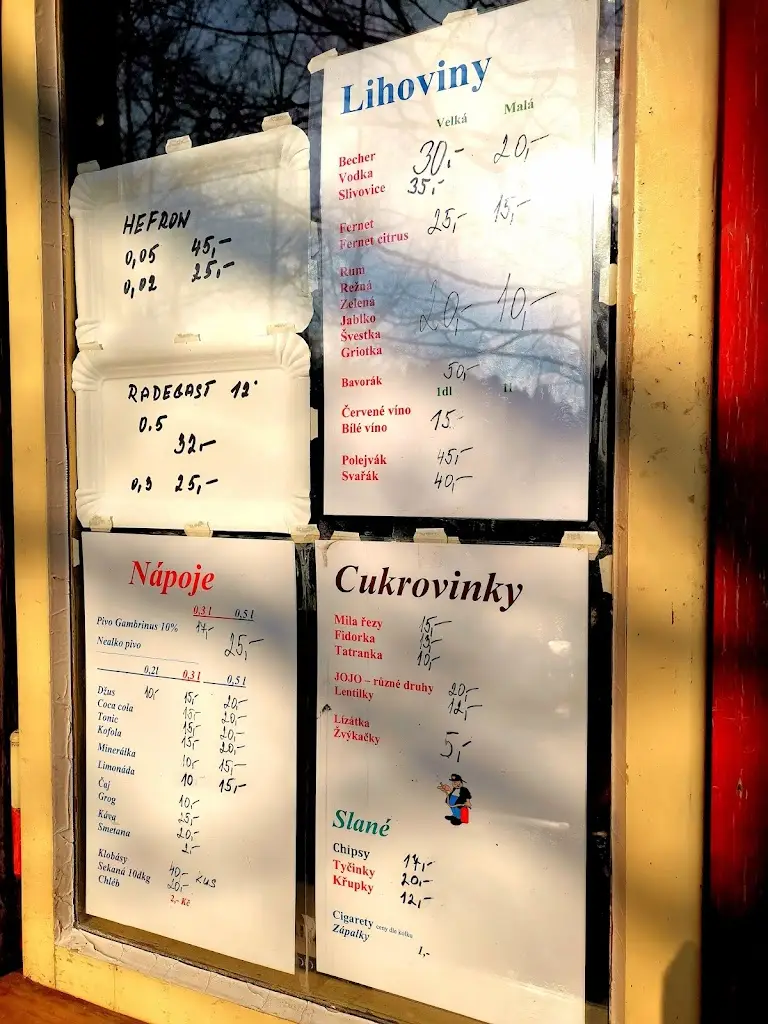 HEFRON
0,05 45,-
0,02 25,-
RADEGAST 12°
0.5
32,-
0,3 25,-
Lihoviny
Velká Malá
Becher
Vodka 30,- 20,-
Slivovice 35,-
Fernet 25,- 15,-
Fernet citrus
Rum
Režná
Zelená
Jablko 20,- 10,-
Švestka
Griotka
Bavorák 50,-
1dl 1l
Červené víno 15,-
Bílé víno
Polejvák 45,-
Svařák 40,-
Nápoje
0,3 l 0,5 l
Pivo Gambrinus 10% 17,-
Nealko pivo 25,-
0,2l 0,3 l 0,5 l
Džus 10,- 15,- 20,-
Coca cola 15,- 20,-
Tonic 15,- 20,-
Kofola 15,- 20,-
Minerálka 10,- 15,-
Limonáda 10 15,-
Čaj 10,-
Grog 25,-
Káva 20,-
Smetana 2,-
Klobásy 40,- kus
Sekaná 10dkg 20,-
Chléb 2,- Kč
Cukrovinky
Mila řezy 15,-
Fidorka 15,-
Tatranka 10,-
JOJO – různé druhy 20,-
Lentilky 12,-
Lízátka
Žvýkačky 5,-
Slané
Chipsy 17,-
Tyčinky 20,-
Křupky 12,-
Cigarety ceny dle kolku
Zápalky 1,-